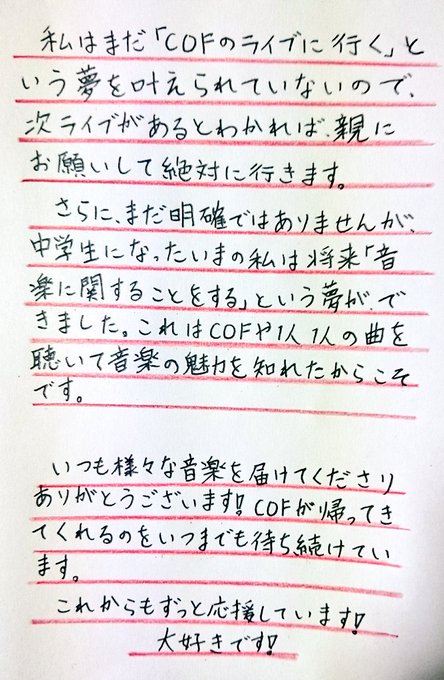 私はまだ「COFのライブに行く」と
いう夢を叶えられていないので、
次ライブがあるとわかれば、親に
お願いして絶対に行きます。
さらに、まだ明確ではありませんが、
中学生になったいまの私は将来「音
楽に関することをする」という夢が、で
きました。これはCOFや1人1人の曲を
聴いて音楽の魅力を知れたからこそ
です。
いつも様々な音楽を届けてくださり
ありがとうございます!COFが帰ってき
てくれるのをいつまでも待ち続けてい
ます。
これからもずっと応援しています!
大好きです!